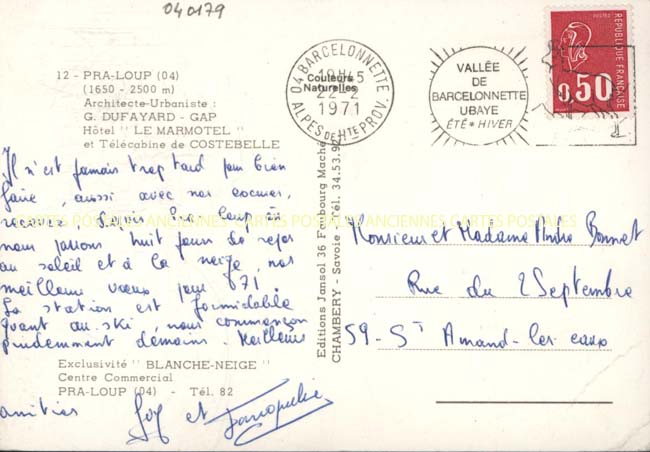 040179
12 - PRA-LOUP (04)
(1650 - 2500 m)
Architecte-Urbaniste :
G. DUFAYARD - GAP
Hôtel " LE MARMOTEL "
et Télécabine de COSTEBELLE
Il n'est jamais trop tard pour bien
faire, aussi avec nos excuses,
recevez, depuis Pra Loup où
nous passons huit jours de repos
au soleil et à la neige, nos
meilleurs vœux pour 71.
La station est formidable
quant au ski, nous commençons
prudemment demain. Meilleures
Exclusivité " BLANCHE-NEIGE "
Centre Commercial
PRA-LOUP (04) - Tél. 82
amitiés
et
Couleurs
Naturelles
Editions Jansol 36 Faubourg Maché
CHAMBERY - Savoie - Tél. 34.53.92
04 BARCELONNETTE
22-2
1971
ALPES DE HTE PROV.
VALLÉE
DE
BARCELONNETTE
UBAYE
ÉTÉ * HIVER
REPUBLIQUE FRANÇAISE
0,50
CARTES POSTALES ANCIENNES CARTES POSTALES ANCIENNES CARTES POSTALES
Monsieur et Madame André Bonnet
Rue du 2 Septembre
59-St Amand-les-eaux